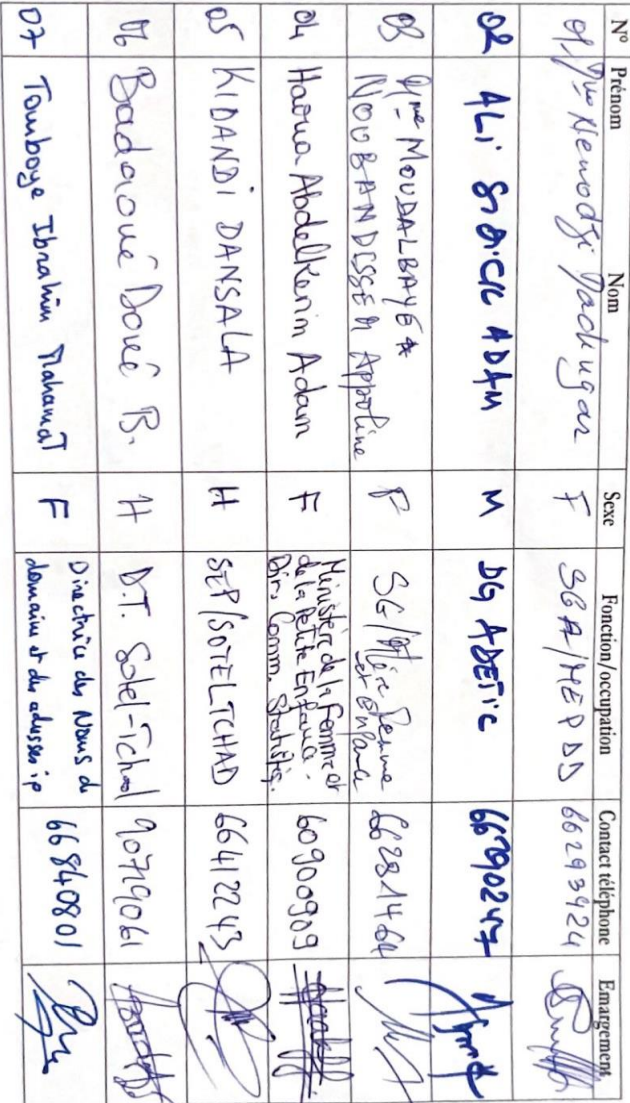 N° Prénom Nom Sexe Fonction/occupation Contact téléphone Emargement
01 Mme Nenodji F SGA/MEPDD 66293424
02 ALI ADAM M DG ADETIC 66390247
03 Mme MOUDALBAYE A F SG/ Femme
NOUBANDISSEM Appoline et Enfance 66281464
04 Haoua Abdelkerim Adam F Ministère de la Femme et
de la Petite Enfance - 60900909
Dir. Comm. Statistiq.
05 KIDANDI DANSALA H SEP/SOTELTCHAD 66412243
06 Badaoué Doué B. H D.T. Sotel-Tchad 90719061
07 Tomboye Ibrahim Mahamat F Directrice des Noms de
domaine et de adresses ip 66840801